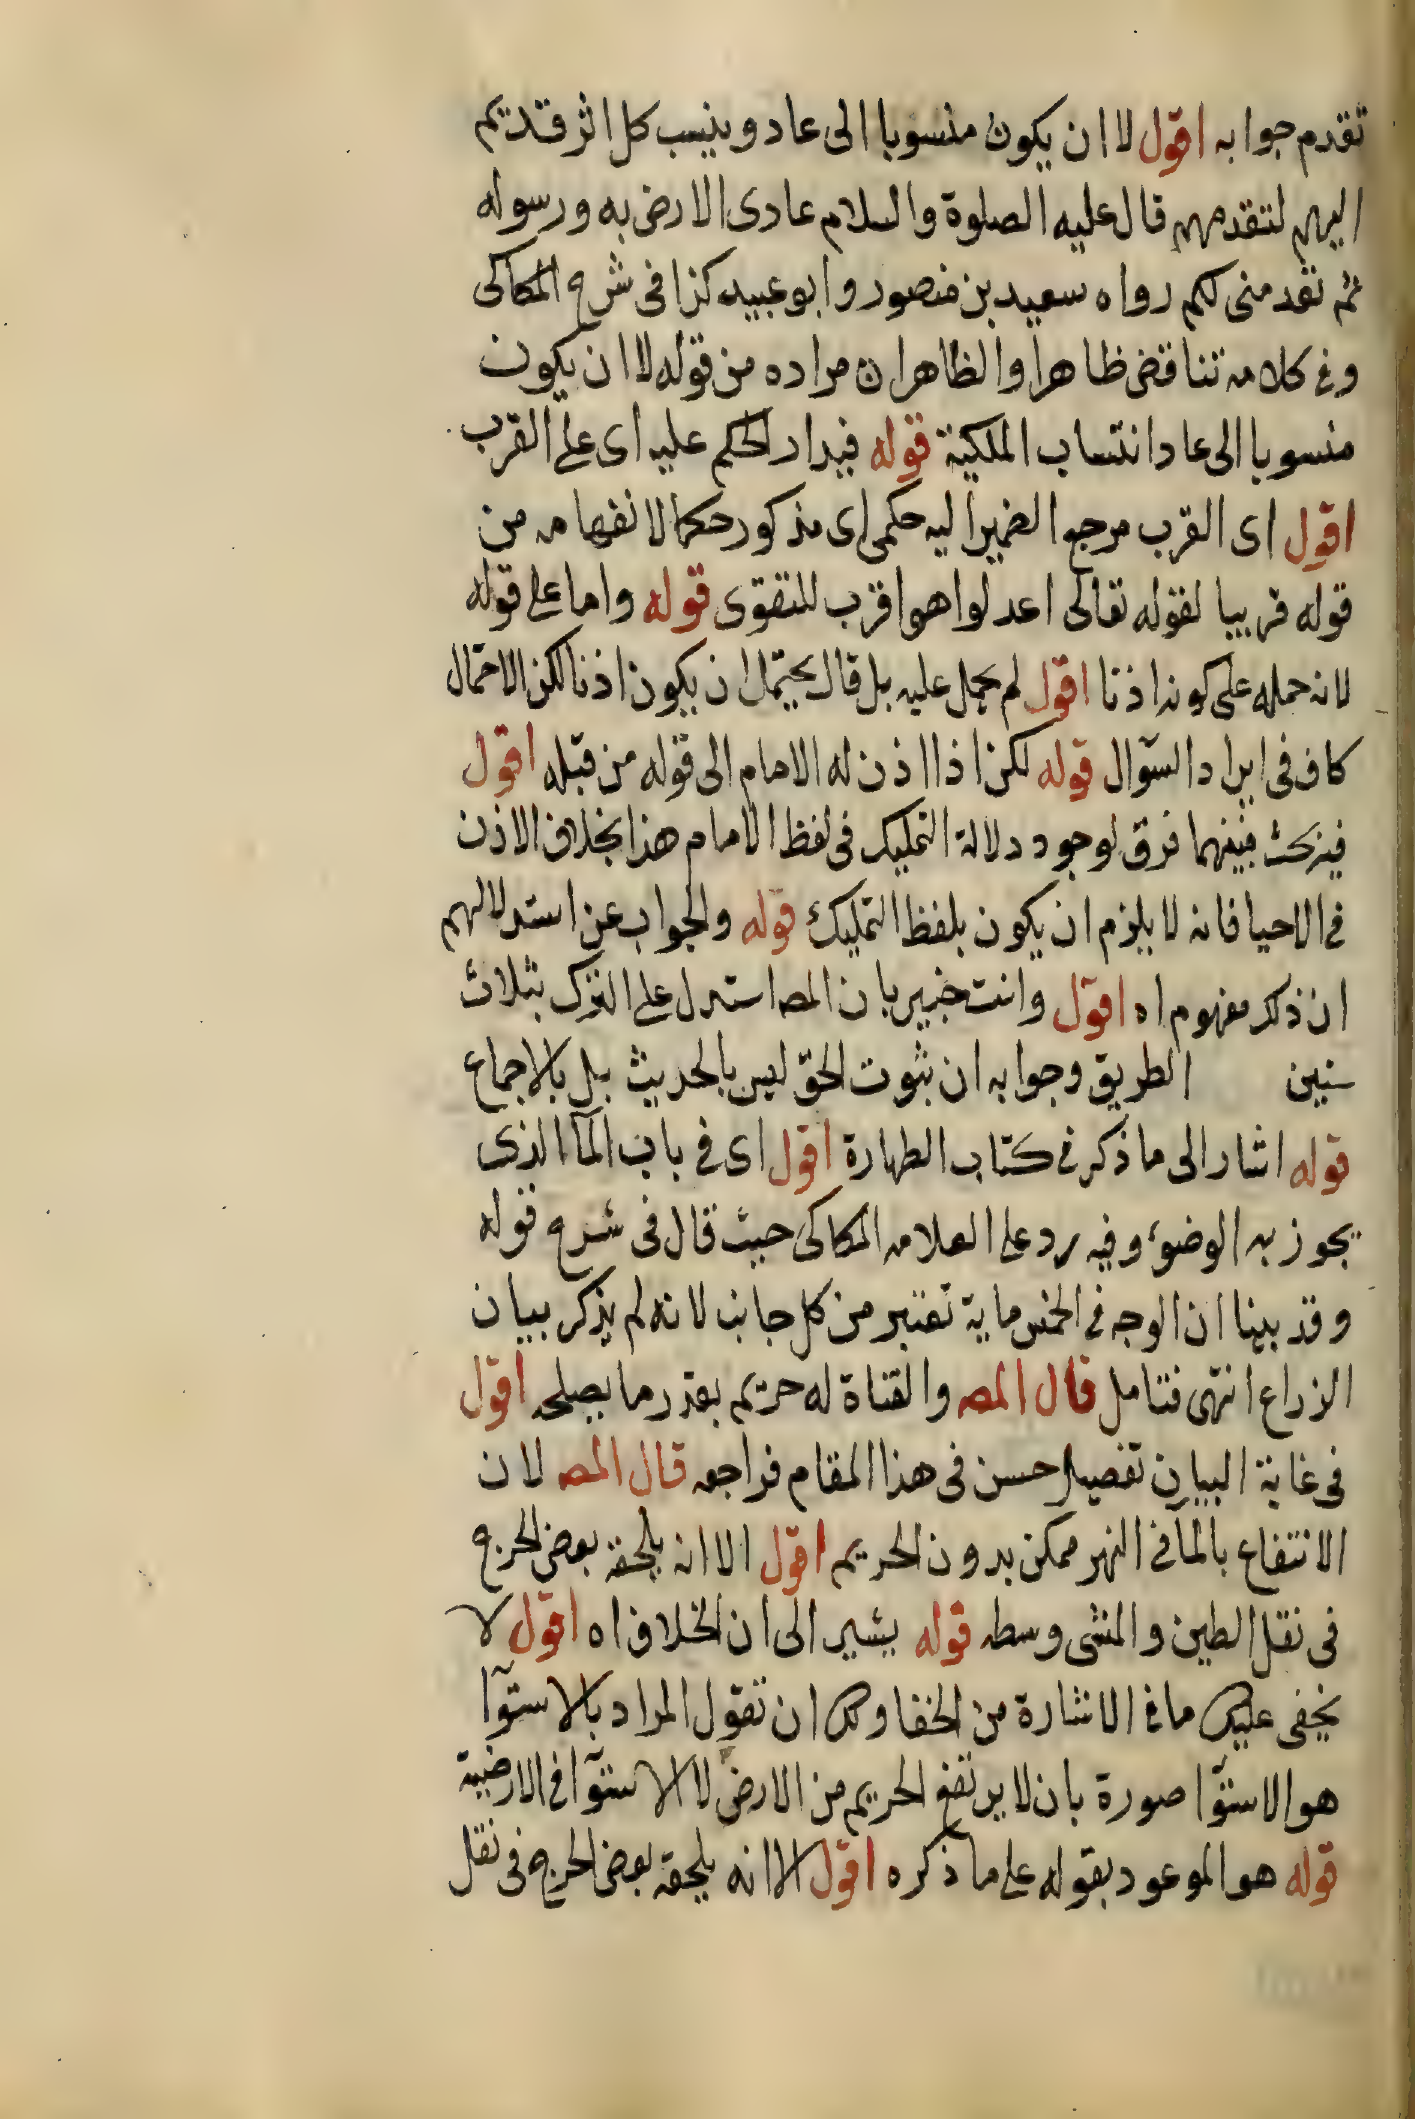 تقدم جوابه اقول لا ان يكون منسوبا الى عاد وينسب كل اثر قديم
اليهم لتقدمهم قال عليه الصلوة والسلام عادى الارض لله ورسوله
ثم تقدمنى لكم رواه سعيد بن منصور وابو عبيد كذا فى شرح الكاكى
وفى كلامه تناقض ظاهرا والظاهر ان مراده من قوله لا ان يكون
منسوبا الى عاد انتساب الملكية قوله فيدار الحكم عليه اى على القرب
اقول اى القرب مرجع الضمير اليه حكمى اى مذكور حكما لانفهامه من
قوله قريبا لقوله تعالى اعدلوا هو اقرب للتقوى قوله واما على قوله
لانه حمله على كونه اذنا اقول لم يحمل عليه بل قال يحتمل ان يكون اذنا لكن الاحتمال
كاف فى ايراد السؤال قوله لكن اذا اذن له الامام الى قوله من قبله اقول
فيه بحث فبينهما فرق لوجود دلالة التمليك فى لفظ الامام هذا بخلاف الاذن
فى الاحيا فانه لا يلزم ان يكون بلفظ التمليك قوله والجواب عن استدلالهم
ان ذكر مفهوم اه اقول وانت خبير بان المصه استدل على الترك بثلاث
سنين الطريق وجوابه ان ثبوت الحق ليس بالحديث بل بالاجماع
قوله اشار الى ما ذكر فى كتاب الطهارة اقول اى فى باب المآ الذى
يجوز به الوضوء وفيه رد على العلامه الكاكى حيث قال فى شرح قوله
وقد بينا ان الوجه فى الخمس ماية تعتبر من كل جانب لانه لم يذكر بيان
الذراع انتهى فتامل قال المصه والقناة له حريم بقدر ما يصلحه اقول
فى غاية البيان تفصيل حسن فى هذا المقام فراجعه قال المصه لان
الانتفاع بالمآ فى النهر ممكن بدون الحريم اقول الا انه يلحقه بعض الحرج
فى نقل الطين والمشى وسطه قوله يشير الى ان الخلاف اه اقول لا
يخفى عليك ما فى الاشارة من الخفا ولك ان تقول المراد بالاستوآ
هو الاستوآ صورة بان لا يرتفع الحريم من الارض لا الاستوآ فى الارضية
قوله هو الموعود بقوله على ما ذكره اقول الا انه يلحقه بعض الحرج فى نقل